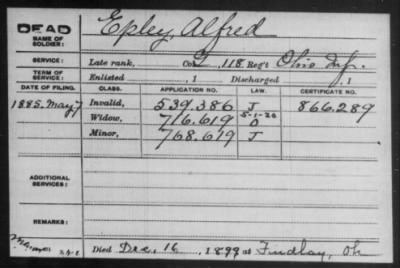 DEAD
NAME OF SOLDIER: Epley, Alfred
SERVICE: Late rank, Co. G, 118 Reg't Ohio Inf.
TERM OF SERVICE: Enlisted , 1 Discharged , 1
DATE OF FILING. CLASS. APPLICATION NO. LAW. CERTIFICATE NO.
1885. May 7 Invalid, 539.386 J 866.289
5-1-20
Widow, 716.619 O
Minor, 768.619 J
ADDITIONAL SERVICES:
REMARKS:
Died Dec. 16, 1899 at Findlay, Oh